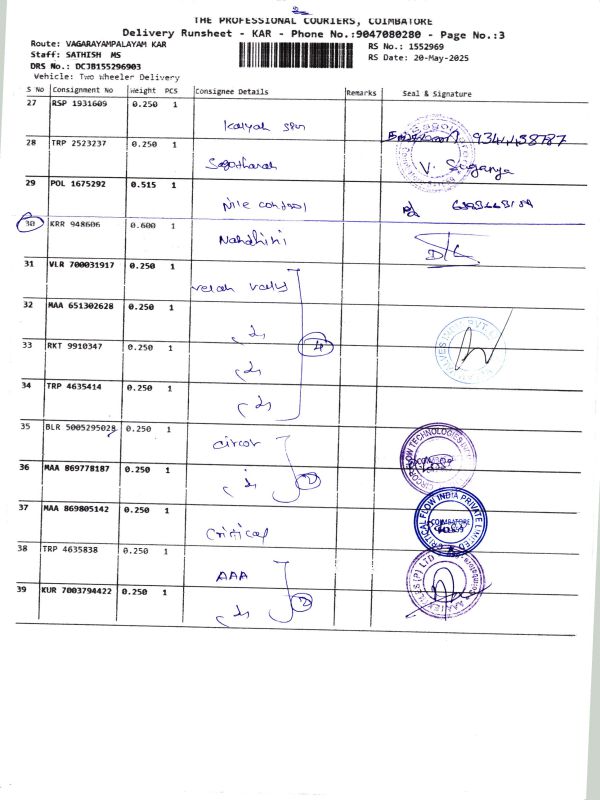 THE PROFESSIONAL COURIERS, COIMBATORE
Delivery Runsheet - KAR - Phone No.:9047080280 - Page No.:3
Route: VAGARAYAMPALAYAM KAR
RS No.: 1552969
Staff: SATHISH MS
RS Date: 20-May-2025
DRS No.: DCJB155296903
Vehicle: Two Wheeler Delivery
S No Consignment No Weight PCS Consignee Details Remarks Seal & Signature
27 RSP 1931609 0.250 1
28 TRP 2523237 0.250 1
V. Saganya
29 POL 1675292 0.515 1
Nile control
30 KRR 948606 0.600 1
Nandhini
31 VLR 700031917 0.250 1
32 MAA 651302628 0.250 1
33 RKT 9910347 0.250 1
4
34 TRP 4635414 0.250 1
35 BLR 5005295028 0.250 1
circor
CIRCOR FLOW TECHNOLOGIES
36 MAA 869778187 0.250 1
2
37 MAA 869805142 0.250 1
Critical
CRITICAL FLOW INDIA PRIVATE LIMITED
COIMBATORE
38 TRP 4635838 0.250 1
AAA
39 KUR 7003794422 0.250 1
2